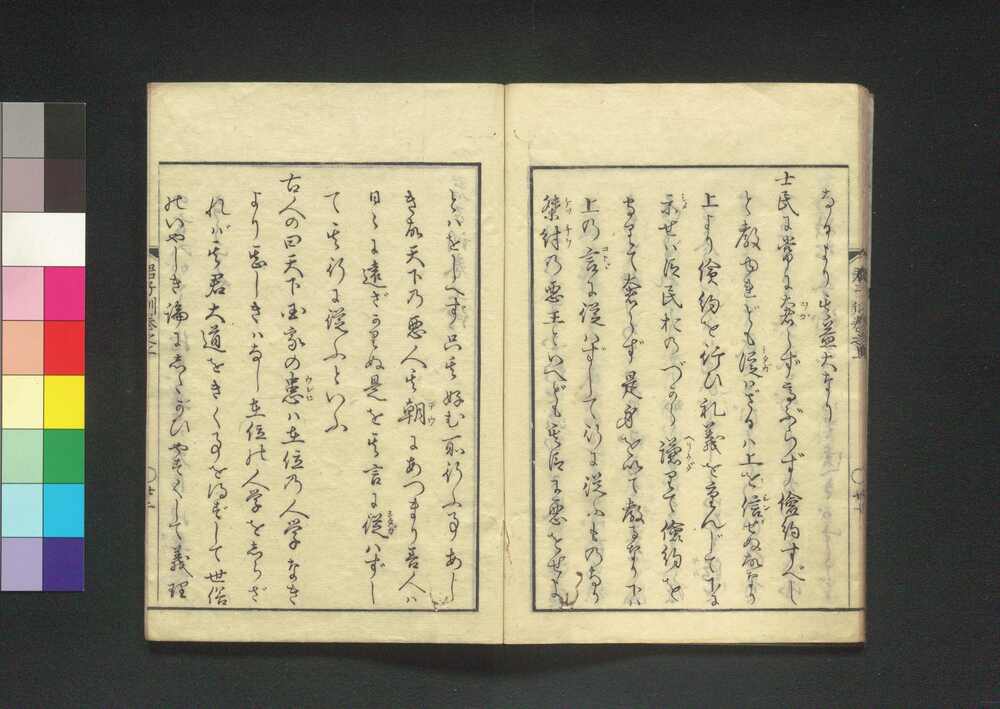 なによりも其益大なり
士民に常に奢らず高ぶらず倹約すべし
と教ゆれども従はざるハ上を信ぜぬ故なり
上より倹約を行ひ礼義を重んじて下に
示せバ臣民おのづから謙りて倹約を
守りて奢らず是身を以て教るなり下ハ
上の言に従はずして行に従ふものなり
桀紂の悪王といへども其臣に悪をせよ
とハをしへず只其好む所行ふ事あし
き故天下の悪人其朝にあつまり善人ハ
日〻に遠ざかりぬ是を其言に従ハずし
て其行に従ふといふ
古人の曰天下国家の患ハ在位の人学なき
より甚しきハなし在位の人学をしらざ
れバ其君大道をきく事を得ずして世俗
のいやしき論にしたがひやすくして義理
君子訓巻之上